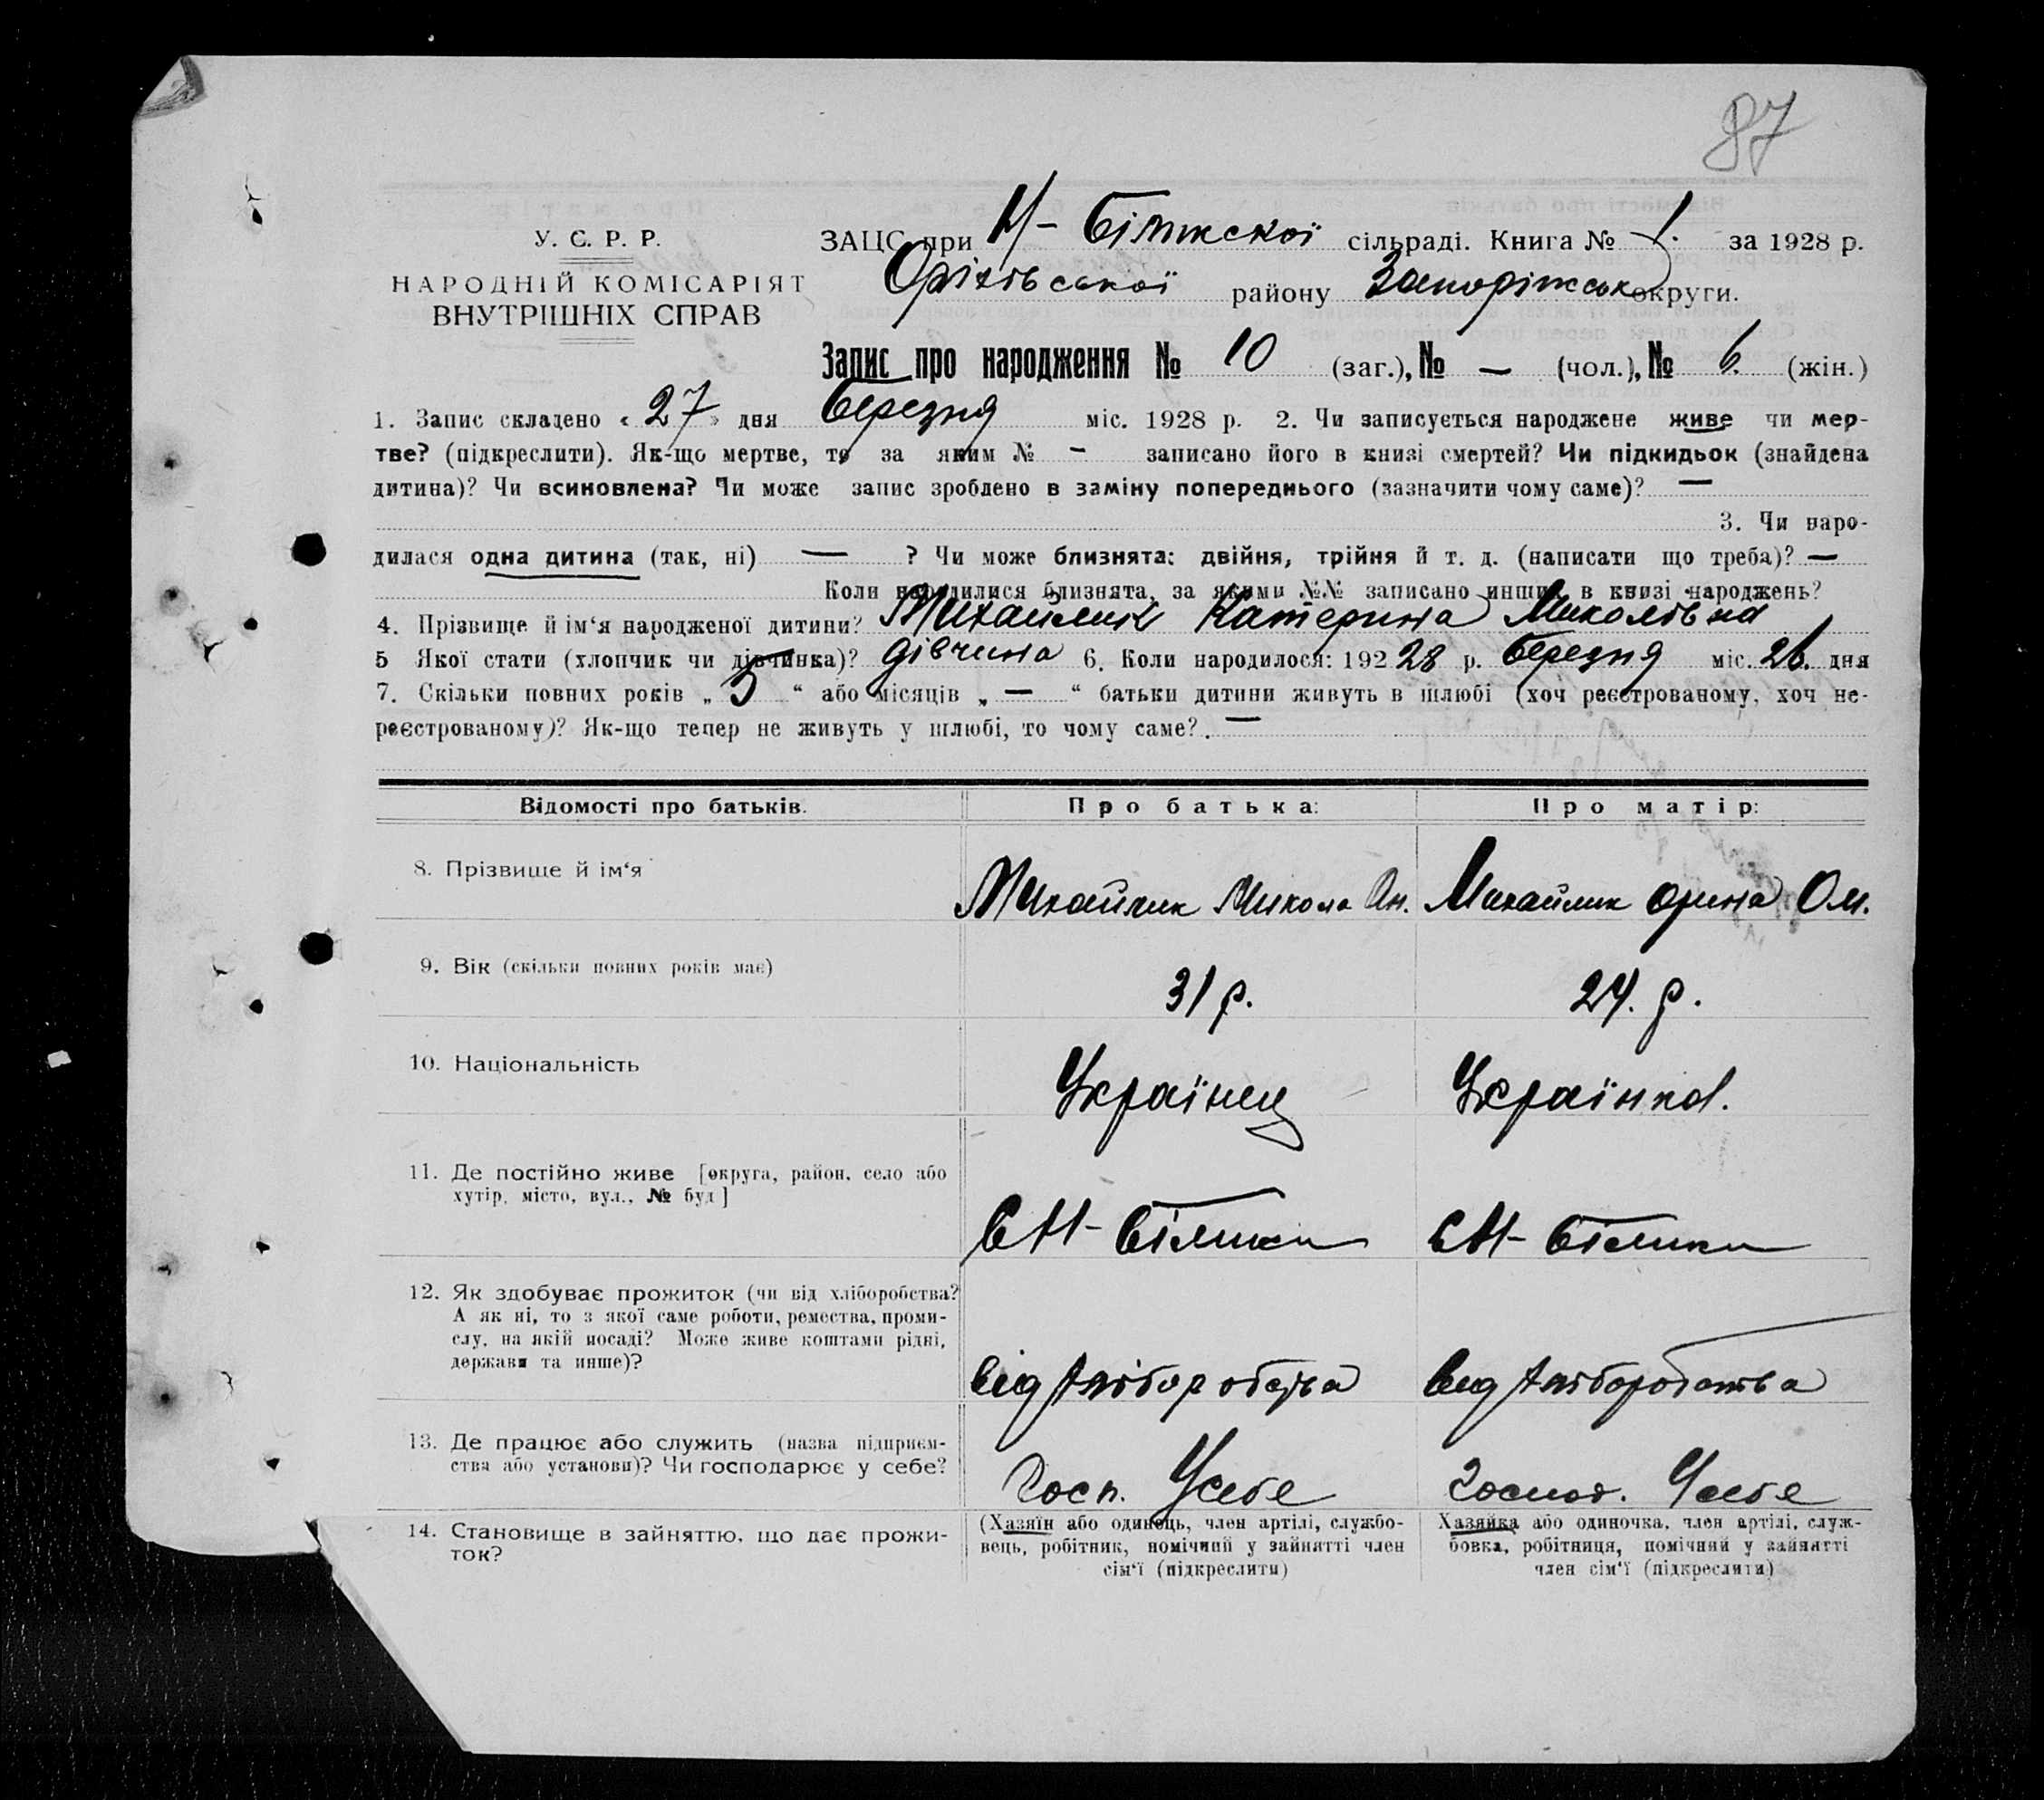 87
У. С. Р. Р.
НАРОДНІЙ КОМІСАРІЯТ
ВНУТРІШНІХ СПРАВ
ЗАЦС при Н-Біликскої сільраді. Книга № 1. за 1928 р.
Оріхівської району Запоріжськ округи.
Запис про народження № 10 (заг.), № — (чол.), № 6. (жін.)
1. Запис складено «27» дня березня міс. 1928 р. 2. Чи записується народжене живе чи мер-
тве? (підкреслити). Як-що мертве, то за яким № - записано його в книзі смертей? Чи підкидьок (знайдена
дитина)? Чи всиновлена? Чи може запис зроблено в заміну попереднього (зазначити чому саме)? —
3. Чи наро-
дилася одна дитина (так, ні) — ? Чи може близнята: двійня, трійня й т. д. (написати що треба)? —
Коли народилися близнята, за якими №№ записано инших в книзі народжень?
4. Прізвище й ім‘я народженої дитини? Михайлик Катерина Миколівна
5 Якої стати (хлопчик чи дівчинка)? дівчина 6. Коли народилося: 192 28 р. березня міс. 26. дня
7. Скільки повних років „ 5 “ або місяців „ — “ батьки дитини живуть в шлюбі (хоч реєстрованому, хоч не-
реєстрованому)? Як-що тепер не живуть у шлюбі, то чому саме? . —
Відомості про батьків. Про батька: Про матір:
8. Прізвище й ім‘я Михайлик Микола Ів. Михайлик Орина Ом.
9. Вік (скільки повних років має) 31 р. 24. р.
10. Національність Українец Українка.
11. Де постійно живе [округа, район, село або
хутір, місто, вул., № буд]
СН-Білики СН-Білики
12. Як здобуває прожиток (чи від хліборобства?
А як ні, то з якої саме роботи, ремества, проми-
слу, на якій посаді? Може живе коштами рідні,
держави та инше)?
Від хліборобства Від хліборобства
13. Де працює або служить (назва підприєм-
ства або установи)? Чи господарює у себе?
Госп. Усебе Господ. Усебе
14. Становище в зайняттю, що дає прожи-
ток?
(Хазяїн або одинець, член артілі, службо-
вець, робітник, помічний у зайнятті член
сім‘ї (підкреслити)
Хазяйка або одиночка, член артілі, служ-
бовка, робітниця, помічний у зайнятті
член сім‘ї (підкреслити)